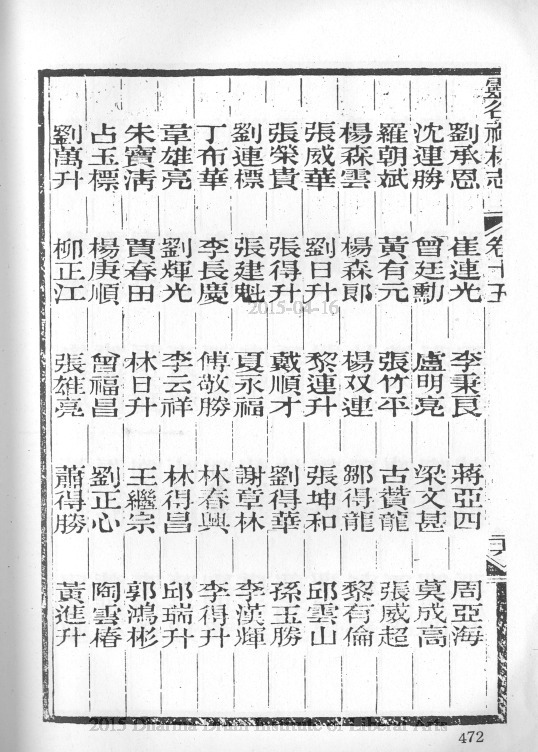 雲谷禪林志 卷十五
劉承恩 崔連光 李秉良 蔣亞四 周亞海
沈連勝 曾廷勳 盧明亮 梁文甚 莫成高
羅朝斌 黃有元 張竹平 古贊龍 張威超
楊森雲 楊森郎 楊双連 鄒得龍 黎有倫
張威華 劉日升 黎連升 張坤和 邱雲山
張榮貴 張得升 戴順才 劉得華 孫玉勝
劉連標 張建魁 夏永福 謝章林 李漢輝
丁布華 李長慶 傅敬勝 林春興 李得升
章雄亮 劉輝光 李云祥 林得昌 邱瑞升
朱寶清 賈春田 林日升 王繼宗 郭鴻彬
占玉標 楊庚順 曾福昌 劉正心 陶雲椿
劉萬升 柳正江 張雄亮 蕭得勝 黃進升
2015-04-16
2015 Dharma Drum Institute of Liberal Arts
472